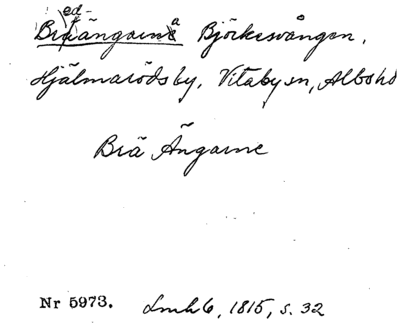 Bredängarna Björkesvången,
Hjälmarödsby, Vitaby sn, Albo hd
Brä Ängarne
Nr 5973. Lmh 6, 1815, s. 32